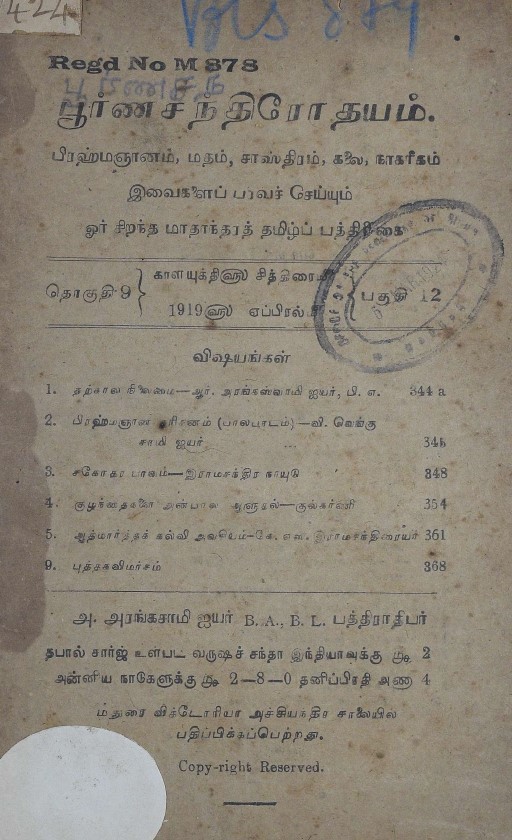 424
Regd No M 878
பூர்ணசந
பூர்ணசந்திரோதயம்.
பிரஹ்மஞானம், மதம், சாஸ்திரம், கலை, நாகரீகம்
இவைகளைப் பரவச் செய்யும்
ஓர் சிறந்த மாதாந்தரத் தமிழ்ப் பத்திரிகை
தொகுதி 9 } காளயுக்தி௵ சித்திரை { பகுதி 12
1919௵ ஏப்பிரல்
விஷயங்கள்
1. தற்கால நிலைமை—ஆர். அரங்கஸ்வாமி ஐயர், பி. எ. 344 a
2. பிரஹ்மஞான (பாலபாடம்)—வி. வெங்கு
சாமி ஐயர் ... 345
3. சகோதர பாவம்—இராமசந்திர நாயுடு 348
4. குழந்தைகளை அன்பால் ஆளுதல்—குல்கர்ணி 354
5. ஆத்மார்த்தக் கல்வி அவசியம்—கே. எஸ். இராமசந்திரையர் 361
9. புத்தகவிமர்சம் 368
அ. அரங்கசாமி ஐயர் B. A., B. L. பத்திராதிபர்
தபால் சார்ஜ் உள்பட வருஷச் சந்தா இந்தியாவுக்கு ரூ 2
அன்னிய நாடுகளுக்கு ரூ 2—8—0 தனிப்பிரதி அணா 4
மதுரை விக்டோரியா அச்சியந்திர சாலையில்
பதிப்பிக்கப்பெற்றது.
Copy-right Reserved.